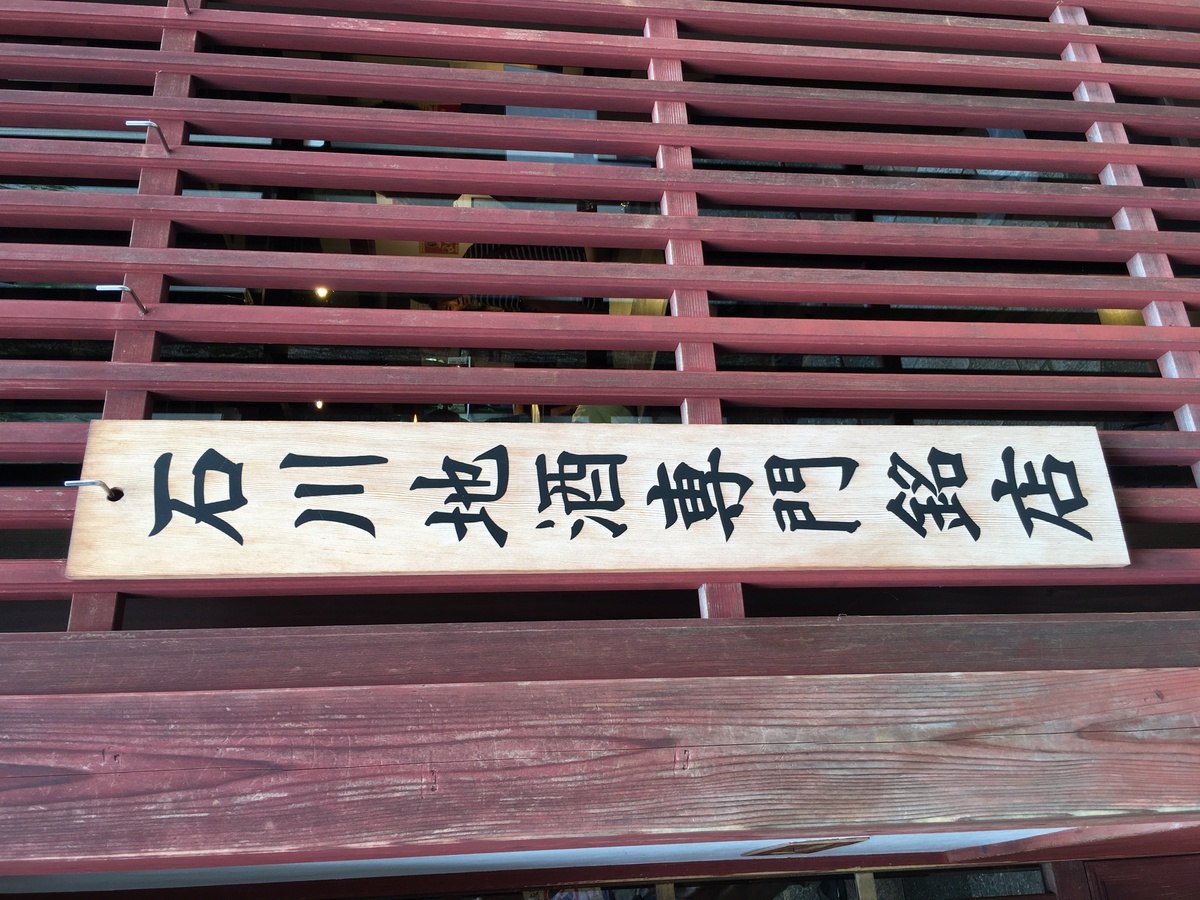 石川地酒専門銘店